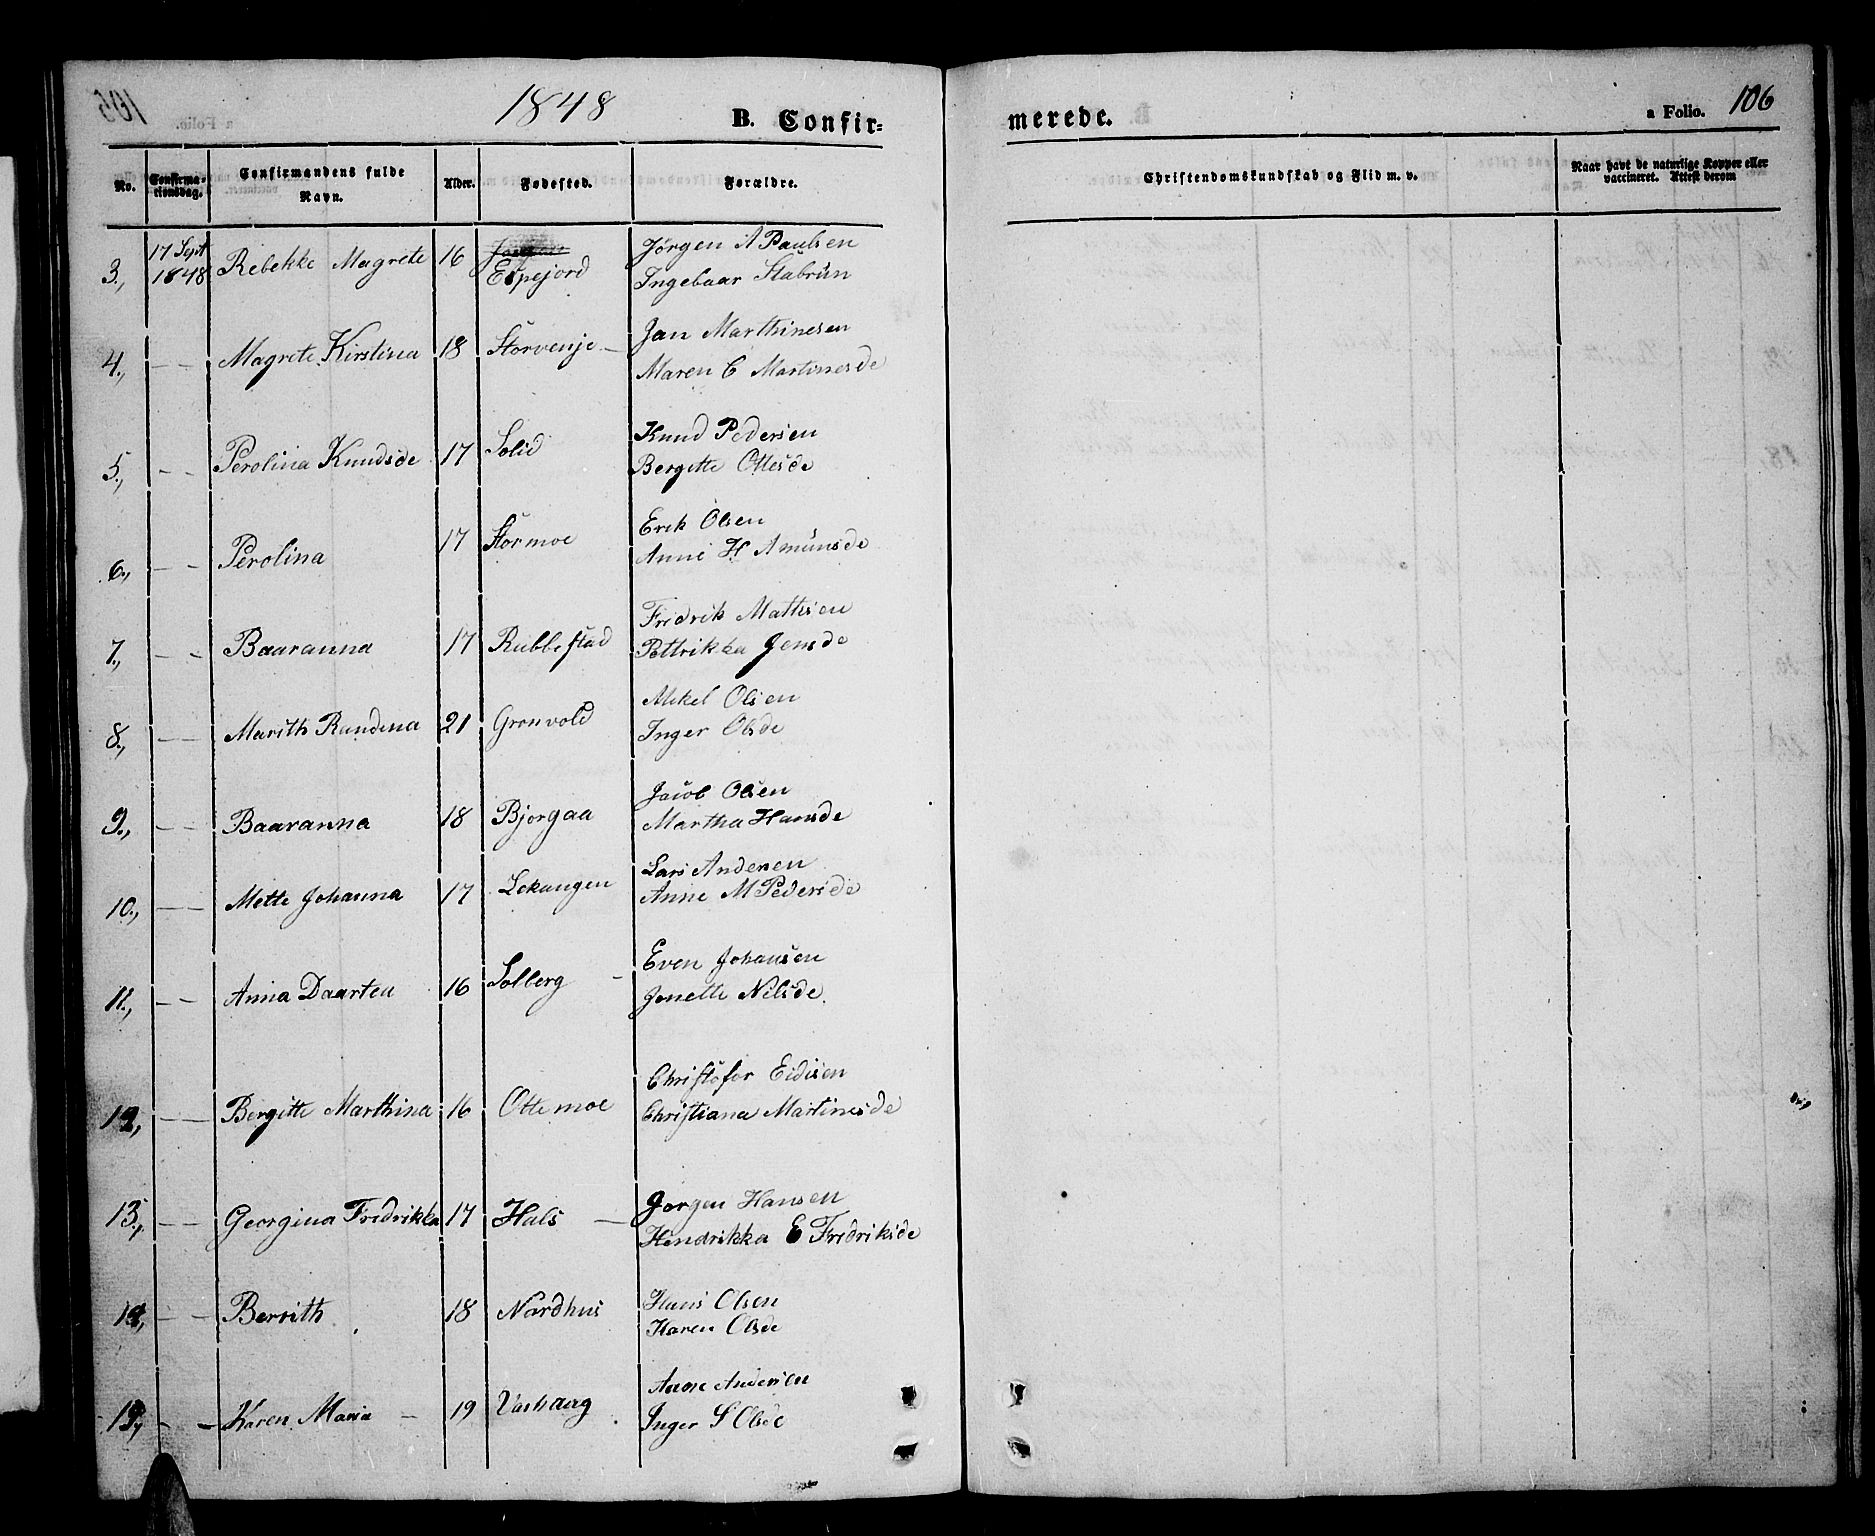 1848 B. Confir-
merede. a Folio. 106
No. Confirma-tionsdag. Confirmandens fulde Navn. Alder. Fødested. Forældre.
Christendomskundskab og Flid m. v. Naar havt de naturlige Kopper eller vaccineret. Attest derom
17 Sept Jørgen A Paulsen
3., 1848 Rebekke Magrete 16 Espejord Ingebaar Stabrün
Jan Marthinesen
4., — — Magrete Kirstina 18 Storvenje — Maren C Martinesde
Knud Pedersen
5., — — Perolina Knudsde 17 Solid Bergitte Ottesde
Erik Olsen
6., — — Perolina 17 Stormoe Anne H Amünsde
Fredrik Mathisen
7., — — Baaranna 17 Rubbestad Pettrikka Jensde
Mikel Olsen
8., — — Marith Randina 21 Gronvold Inger Olsde
Jacob Olsen
9., — — Baaranna 18 Bjorgaa Martha Hansde
Lars Andersen
10., — — Mette Johanna 17 Lekangen Anne M Pedersde
Even Johansen
11., — — Anna Daartea 16 Solberg — Jonette Nelsde.
Christofor Eidisen
12., — — Bergitte Marthina 16 Ottemoe Christiana Martinesde
Jorgen Hansen
13., — — Georgina Fredrikka 17 Hals — Hendrikka E Fredriksde
Hans Olsen
14., — — Berrith 18 Nordhus Karen Olsde
Andersen
15., — — Karen Maria — 19 Vashaug Inger S Olsde